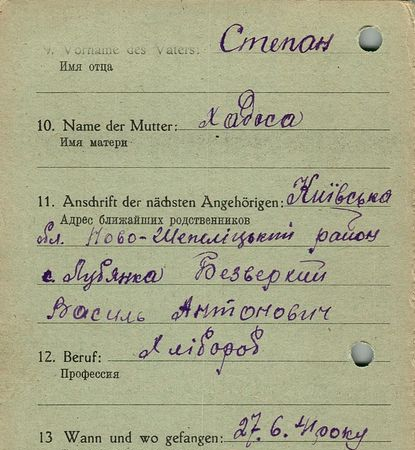 9. Vorname des Vaters: Степан
Имя отца
10. Name der Mutter: Хадоса
Имя матери
11. Anschrift der nächsten Angehörigen: Київська
Адрес ближайших родственников
обл. Ново-Шепеліцький район
с. Лубянка Безверхий
Василь Антонович
12. Beruf: Хлібороб
Профессия
13 Wann und wo gefangen: 27.6.41 року